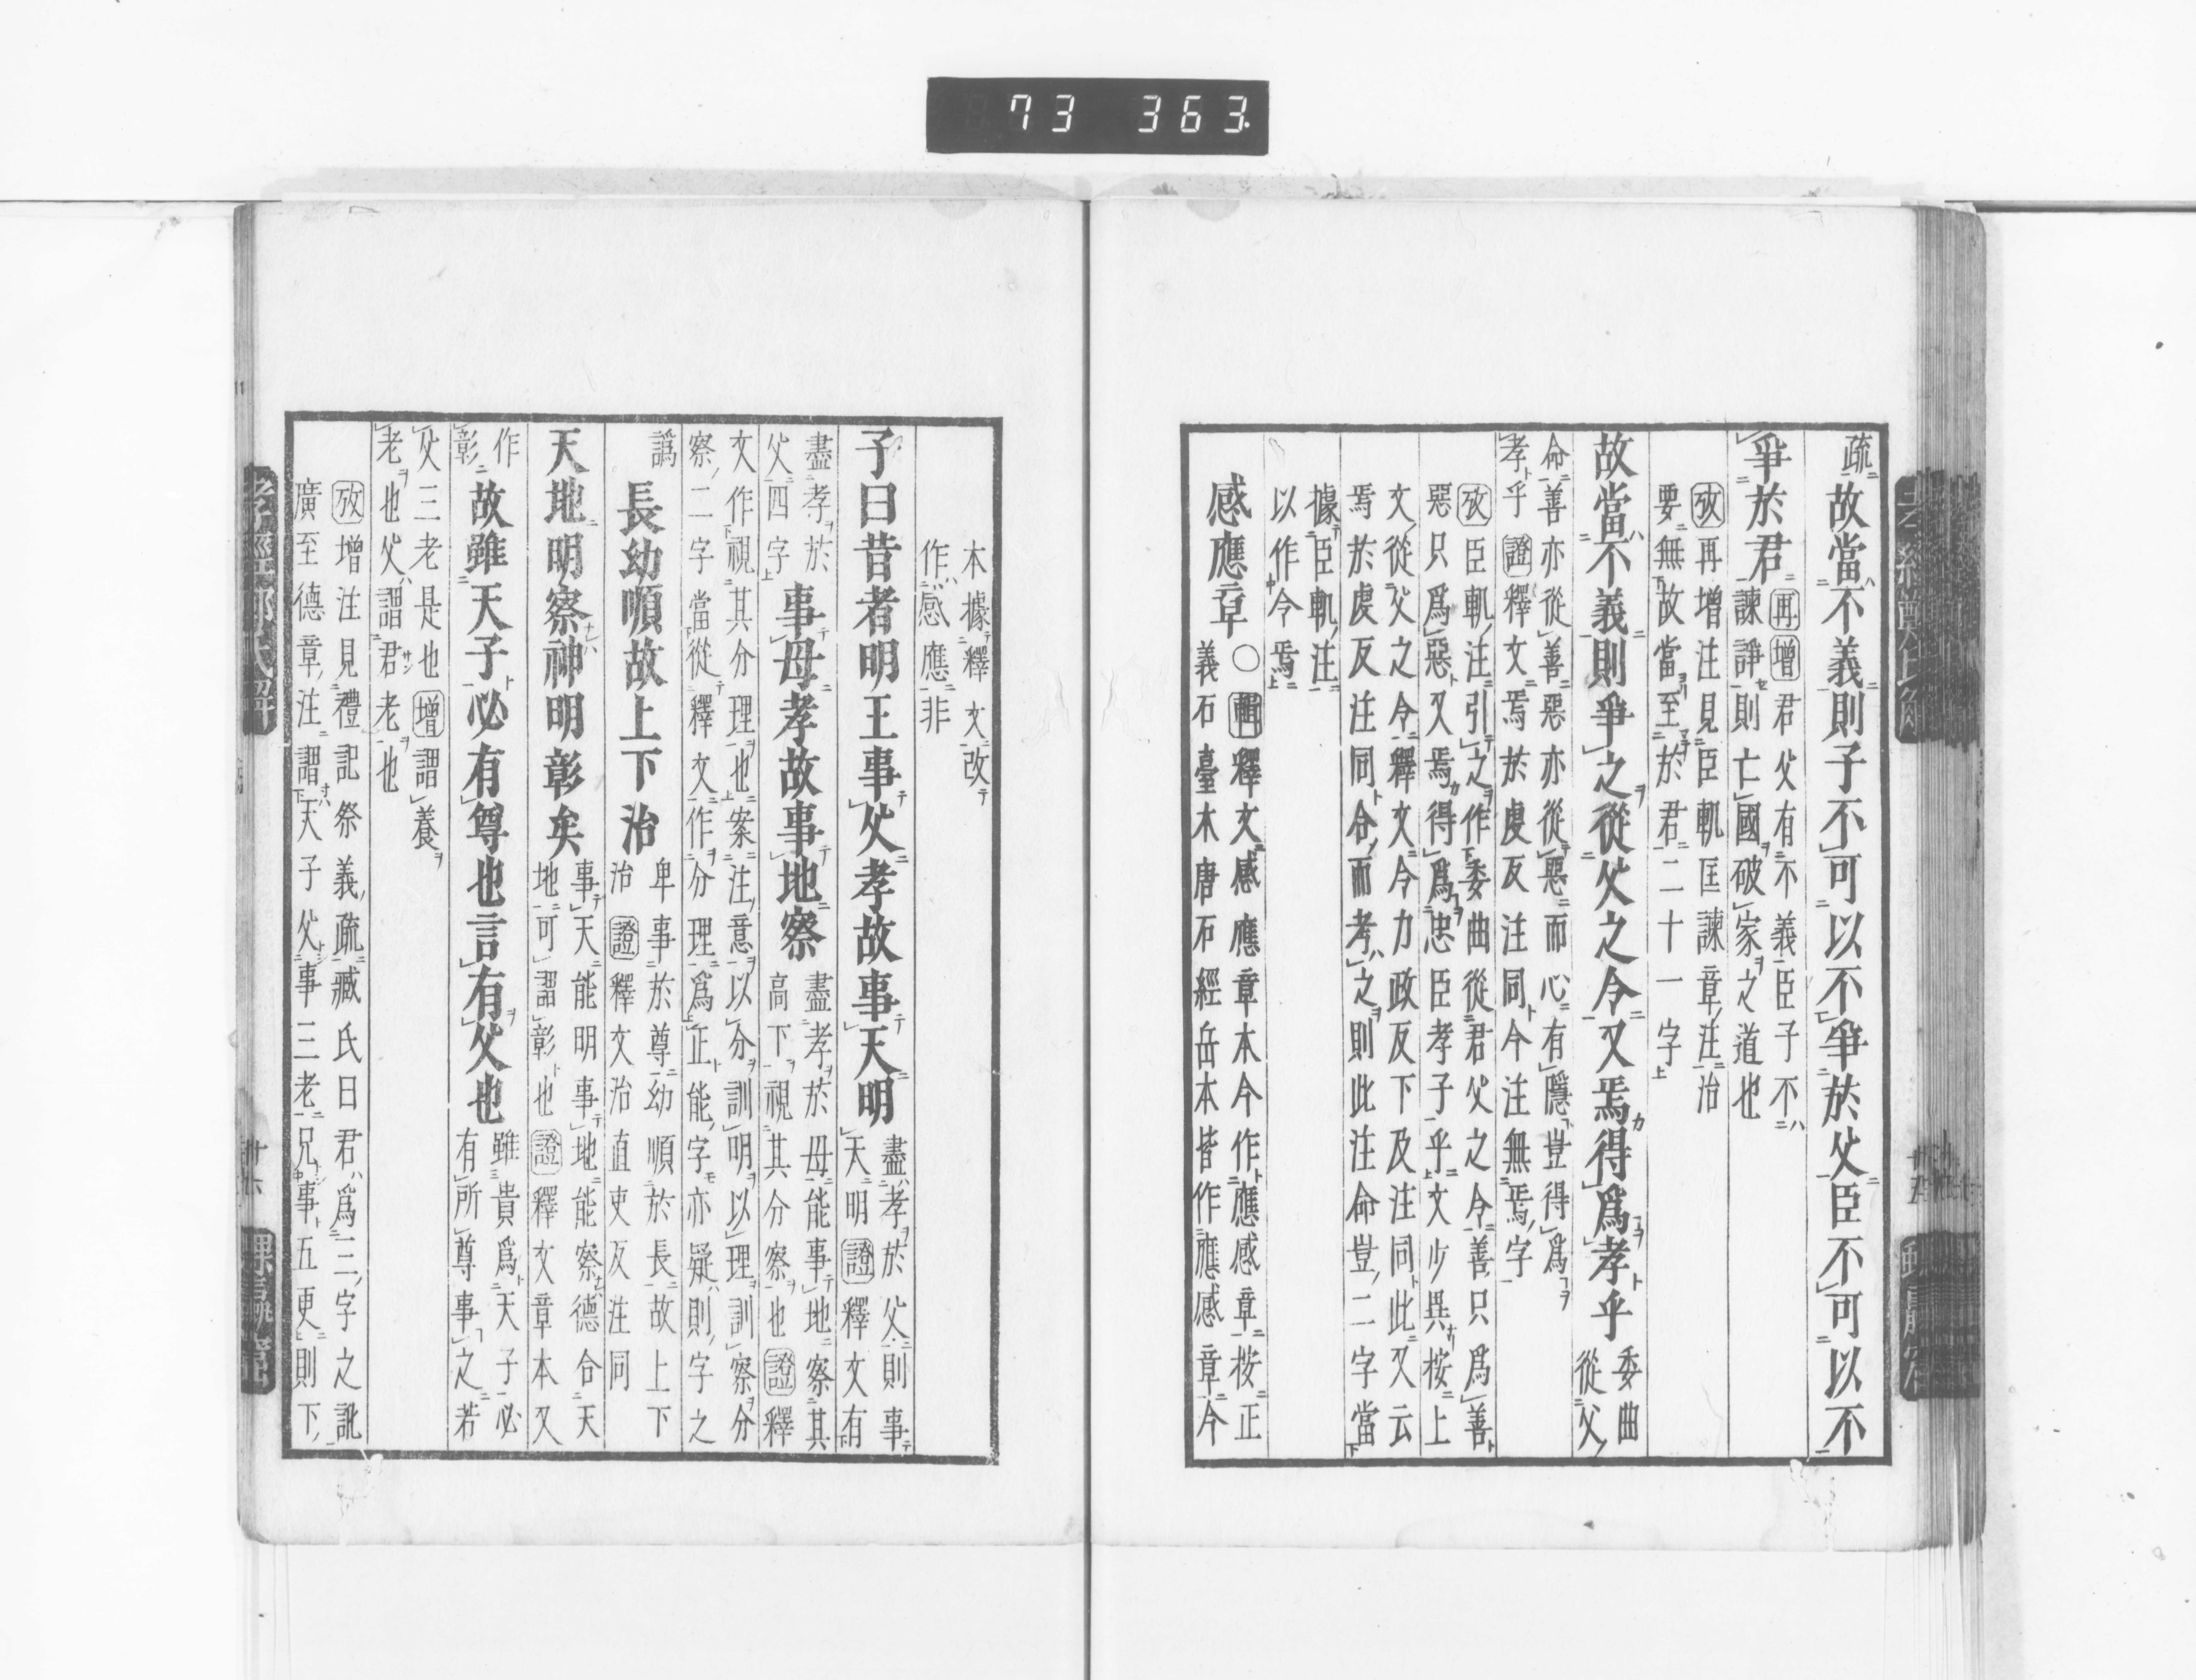 73 363.
疏
故當不義則子不可以不爭於父臣不可以不
爭於君
再增君父有不義臣子不
諫諍則亡國破家之道也
攷再增注見臣軌匡諫章注治
要無故當至於君二十一字
故當不義則爭之從父之令又焉得爲孝乎
委曲
從父
命善亦從善惡亦從惡而心有隱豈得爲
孝乎證釋文焉於虔反注同今注無焉字
攷臣軌注引之作委曲從君父之令善只爲善
惡只爲惡又焉得爲忠臣孝子乎文少異按上
文從父之令釋文令力政反下及注同此又云
焉於虔反注同合而考之則此注命豈二字當
據臣軌注
以作令焉
感應章
○輯釋文感應章本今作應感章按正
義石臺本唐石經岳本皆作應感章今
本據釋文改
作感應非
子曰昔者明王事父孝故事天明
盡孝於父則事
天明證釋文有
盡孝於
父四字
事母孝故事地察
盡孝於母能事地察其
高下視其分察也證釋
文作視其分理也案注意以分訓明以理訓察分
察二字當從釋文作分理爲正能字亦疑則字之
譌
長幼順故上下治
卑事於尊幼順於長故上下
治證釋文治直吏反注同
天地明察神明彰矣
事天能明事地能察德合天
地可謂彰也證釋文章本又
作
彰
故雖天子必有尊也言有父也
雖貴爲天子必
有所尊事之若
父三老是也增謂養
老也父謂君老也
攷增注見禮記祭義疏臧氏曰君爲三字之訛
廣至德章注謂天子父事三老兄事五更則下
廿六